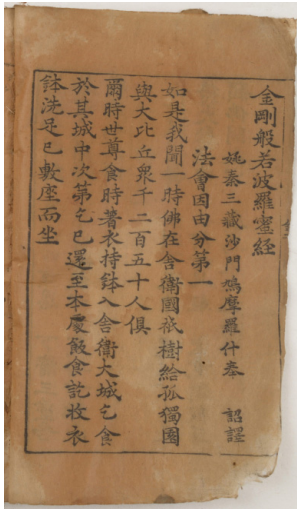 金剛般若波羅蜜經
姚秦三藏沙門鳩摩羅什奉 詔譯
法會因由分第一
如是我聞一時佛在舍衛國祇樹給孤獨園
與大比丘衆千二百五十人俱
爾時世尊食時著衣持鉢入舍衛大城乞食
於其城中次第乞已還至本處飯食訖收衣
鉢洗足已敷座而坐